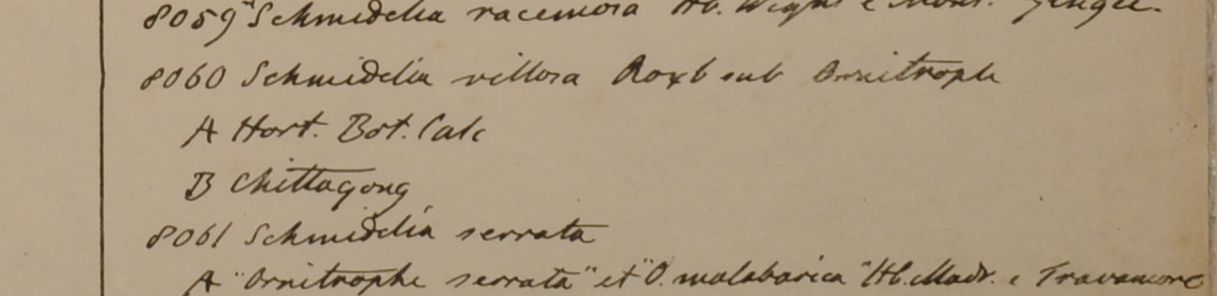 8059 Schmidelia racemosa Hb. Wight e Mont. Gingee.
8060 Schmidelia villosa Roxb sub Ornitrophe
A Hort. Bot. Calc
B Chittagong
8061 Schmidelia serrata
A "Ornitrophe serrata" et "O. malabarica" Hb. Madr. e Travancore